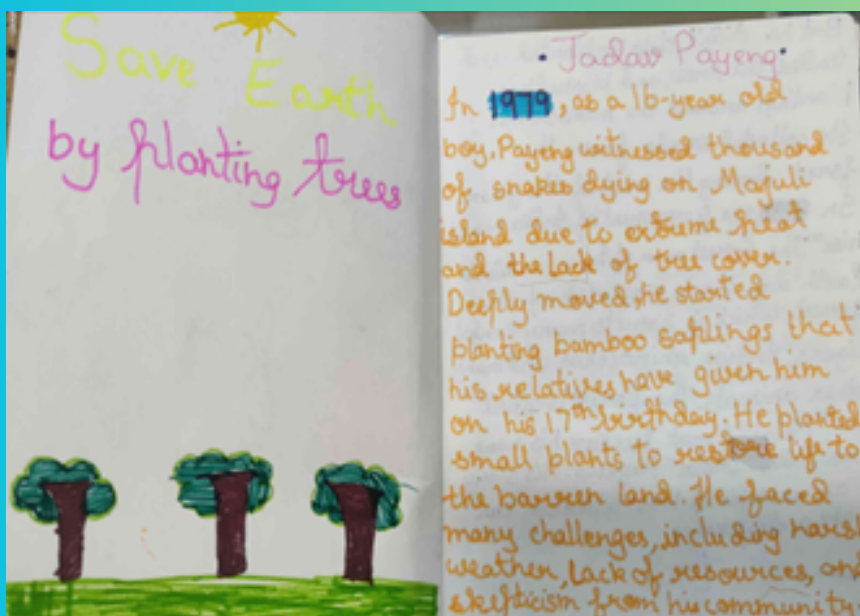 Save Earth
by planting trees
• Jadav Payeng •
In 1979, as a 16-year old
boy, Payeng witnessed thousand
of snakes dying on Majuli
island due to extreme heat
and the lack of tree cover.
Deeply moved, he started
planting bamboo saplings that
his relatives have given him
on his 17th birthday. He planted
small plants to restore life to
the barren land. He faced
many challenges, including harsh
weather, lack of resources, and
skepticism from his community